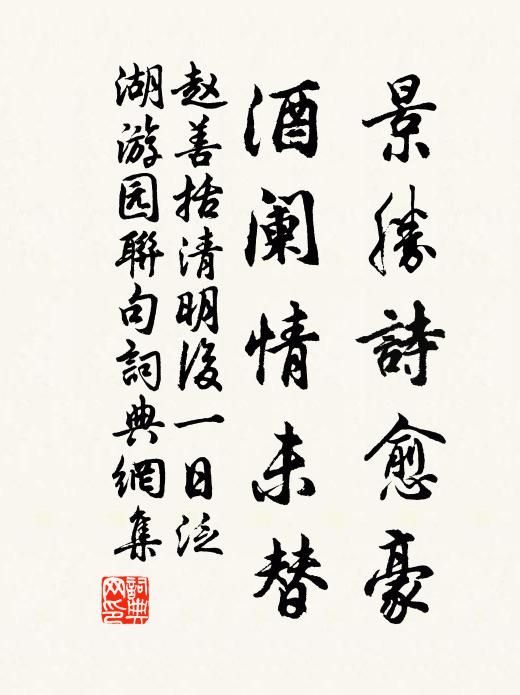 景勝詩愈豪
酒阑情未替
赵善括清明後一日泛
湖游园聯句詞典網集
詞典
网印